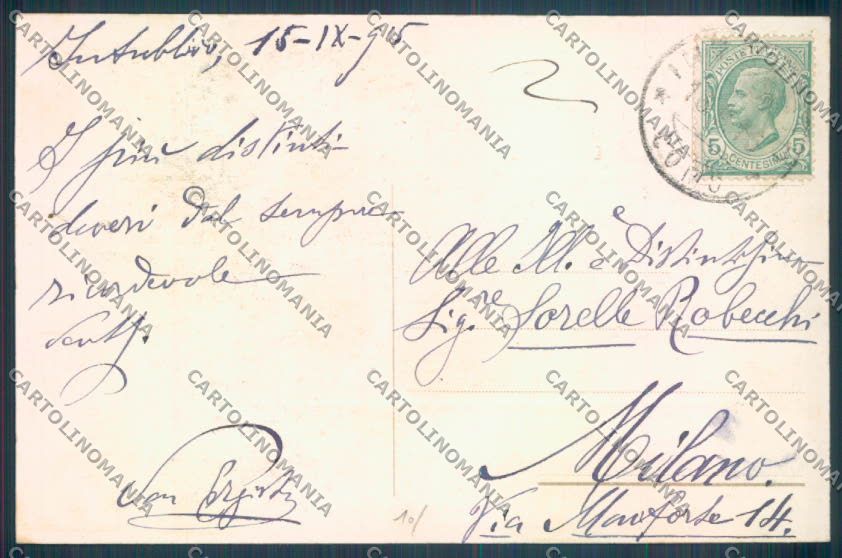 15-IX-95
I più distinti
doveri dal sempre
ricordevole
Alle Ill. e Distintissime
Sig.re Sorelle Robecchi
Milano.
Via Monforte 14.
10/
POSTE ITALIANE
5 5
CENTESIMI
COMO
CARTOLINOMANIA